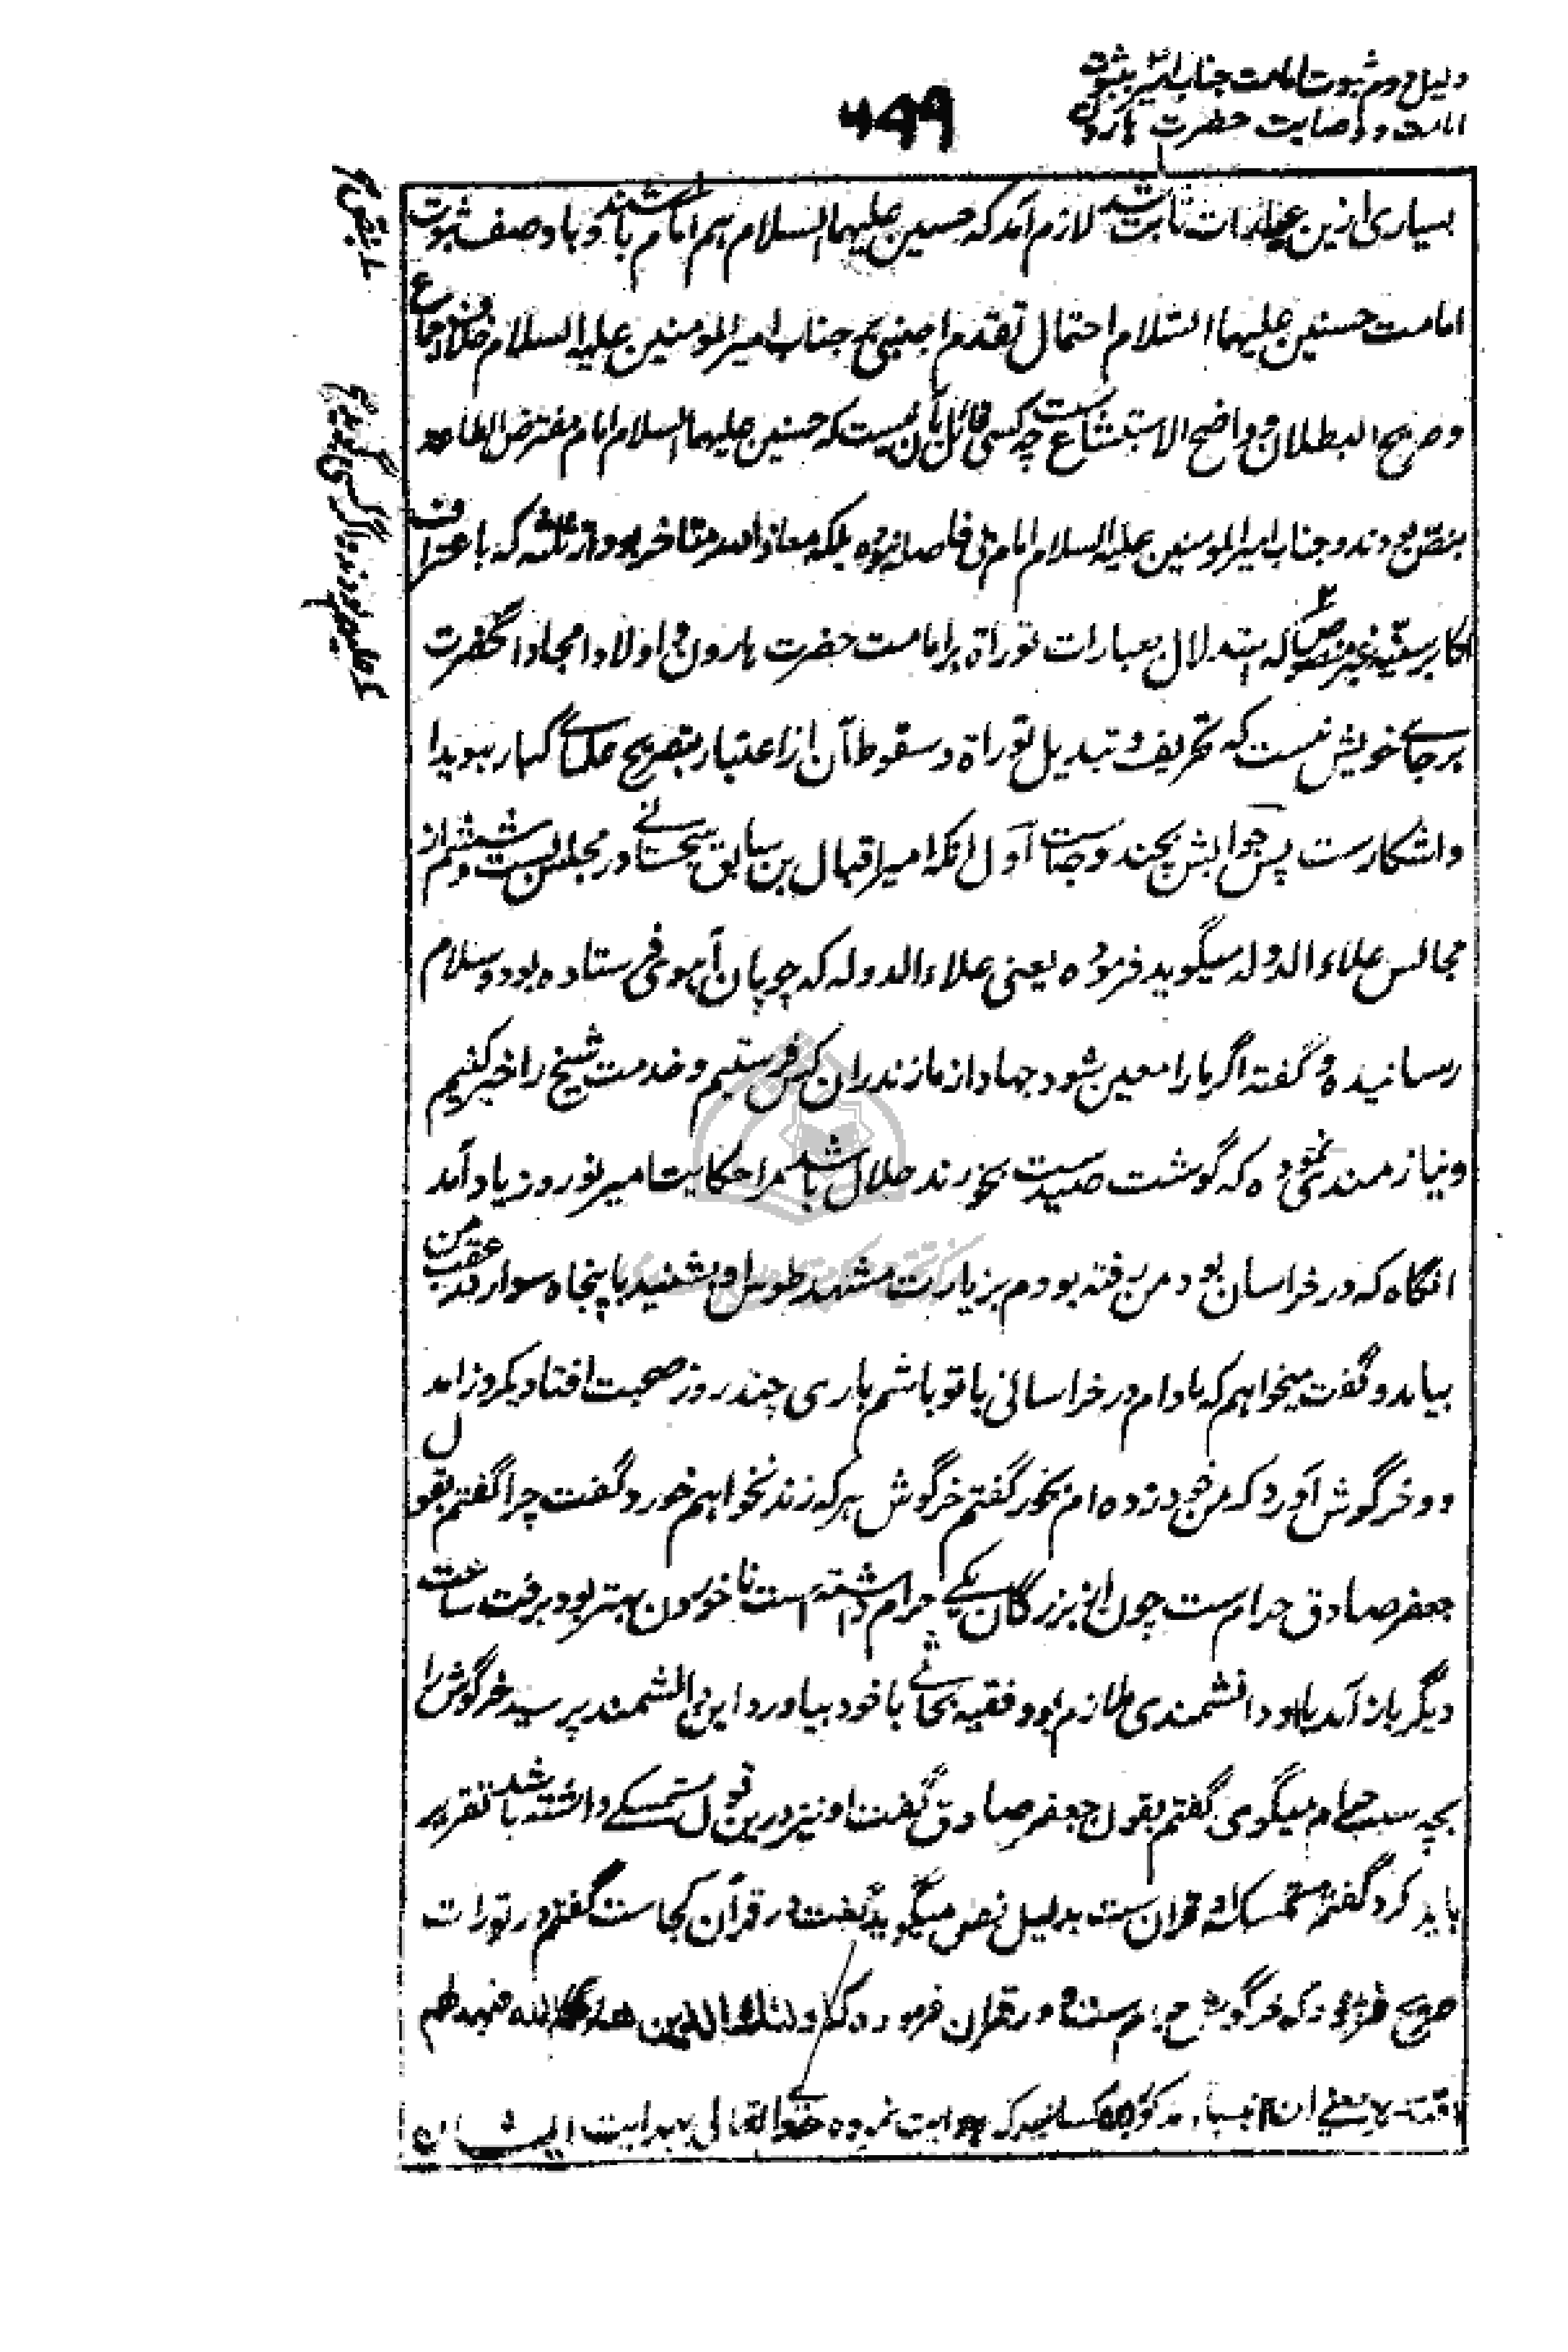 دلیل دوم ثبوت امامت جناب امیر بثبوت
امامت و وصایت حضرت هارون
۶۹۹
بسیاری ازین عبارات ثابت شد لازم آمد که حسنین علیهما السلام هم امام باشند و با وصف ثبوت
امامت حسنین علیهما السلام احتمال تقدم اجنبی بر جناب امیرالمومنین علیه السلام خلاف اجماع
و صریح البطلان و واضح الاستبشاع ست چه کسی قائل بآن نیست که حسنین علیهما السلام امام مفترض الطاعه
بنص بودند و جناب امیرالمومنین علیه السلام امام بلا فاصله نبوده بلکه معاذ الله متاخر بود از ثلثه که باعتراف
اکابر سنیه غیر منصوص
له استدلال بعبارات توراة بر امامت حضرت هارون و اولاد امجاد آنحضرت
برجای خویش نیست که تحریف و تبدیل توراة و سقوط آن از اعتبار بتصریح علمای کبار هویدا
و آشکارست پس جوابش بچند وجه است اول آنکه امیر اقبال بن سابق سجستانی در مجلس بست و ششم از
مجالس علاء الدوله میگوید فرموده یعنی علاء الدوله که چوپان آهوی فرستاده بود و سلام
رسانیده و گفته اگر ما را معین شود جهاد از مازندران کس فرستیم و خدمت شیخ را خبر کنیم
و نیازمندی نموده که گوشت صیدست بخورند حلال باشد مرا حکایت امیر نوروز یاد آمد
آنگاه که در خراسان بود من رفته بودم بزیارت مشهد طوس او بشنید با پنجاه سوار در عقب من
بیامد و گفت میخواهم که مادام در خراسانی با تو باشم باری چند روز صحبت افتاد یکروز آمد
و دو خرگوش آورد که من خود زده ام بخور گفتم خرگوش هرکه زند نخواهم خورد گفت چرا گفتم بقول
جعفر صادق حرام ست چون از بزرگان یکی حرام داشته است ناخوردن بهتر بود برفت ساعت
دیگر باز آمد با او دانشمندی ملازم بود و فقیه بخاری با خود بیاورد این دانشمند پرسید خرگوش را
بچه سبب حرام میگوی گفتم بقول جعفر صادق گفت او نیز درین قول متمسکی داشته باشد تقریر
باید کرد گفتم متمسک او قرآن ست بدلیل نص میگوید گفت در قرآن کجاست گفتم در تورات
صریح فرمود که خرگوش حرام ست و در قرآن فرموده که اولئک الذین هدی الله فبهدهم
اقتده یعنی ان انبیاء مذکور کسانیند که هدایت نموده خدای تعالی بهدایت ایشان